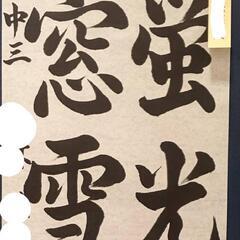 蛍光
窓雪
中三